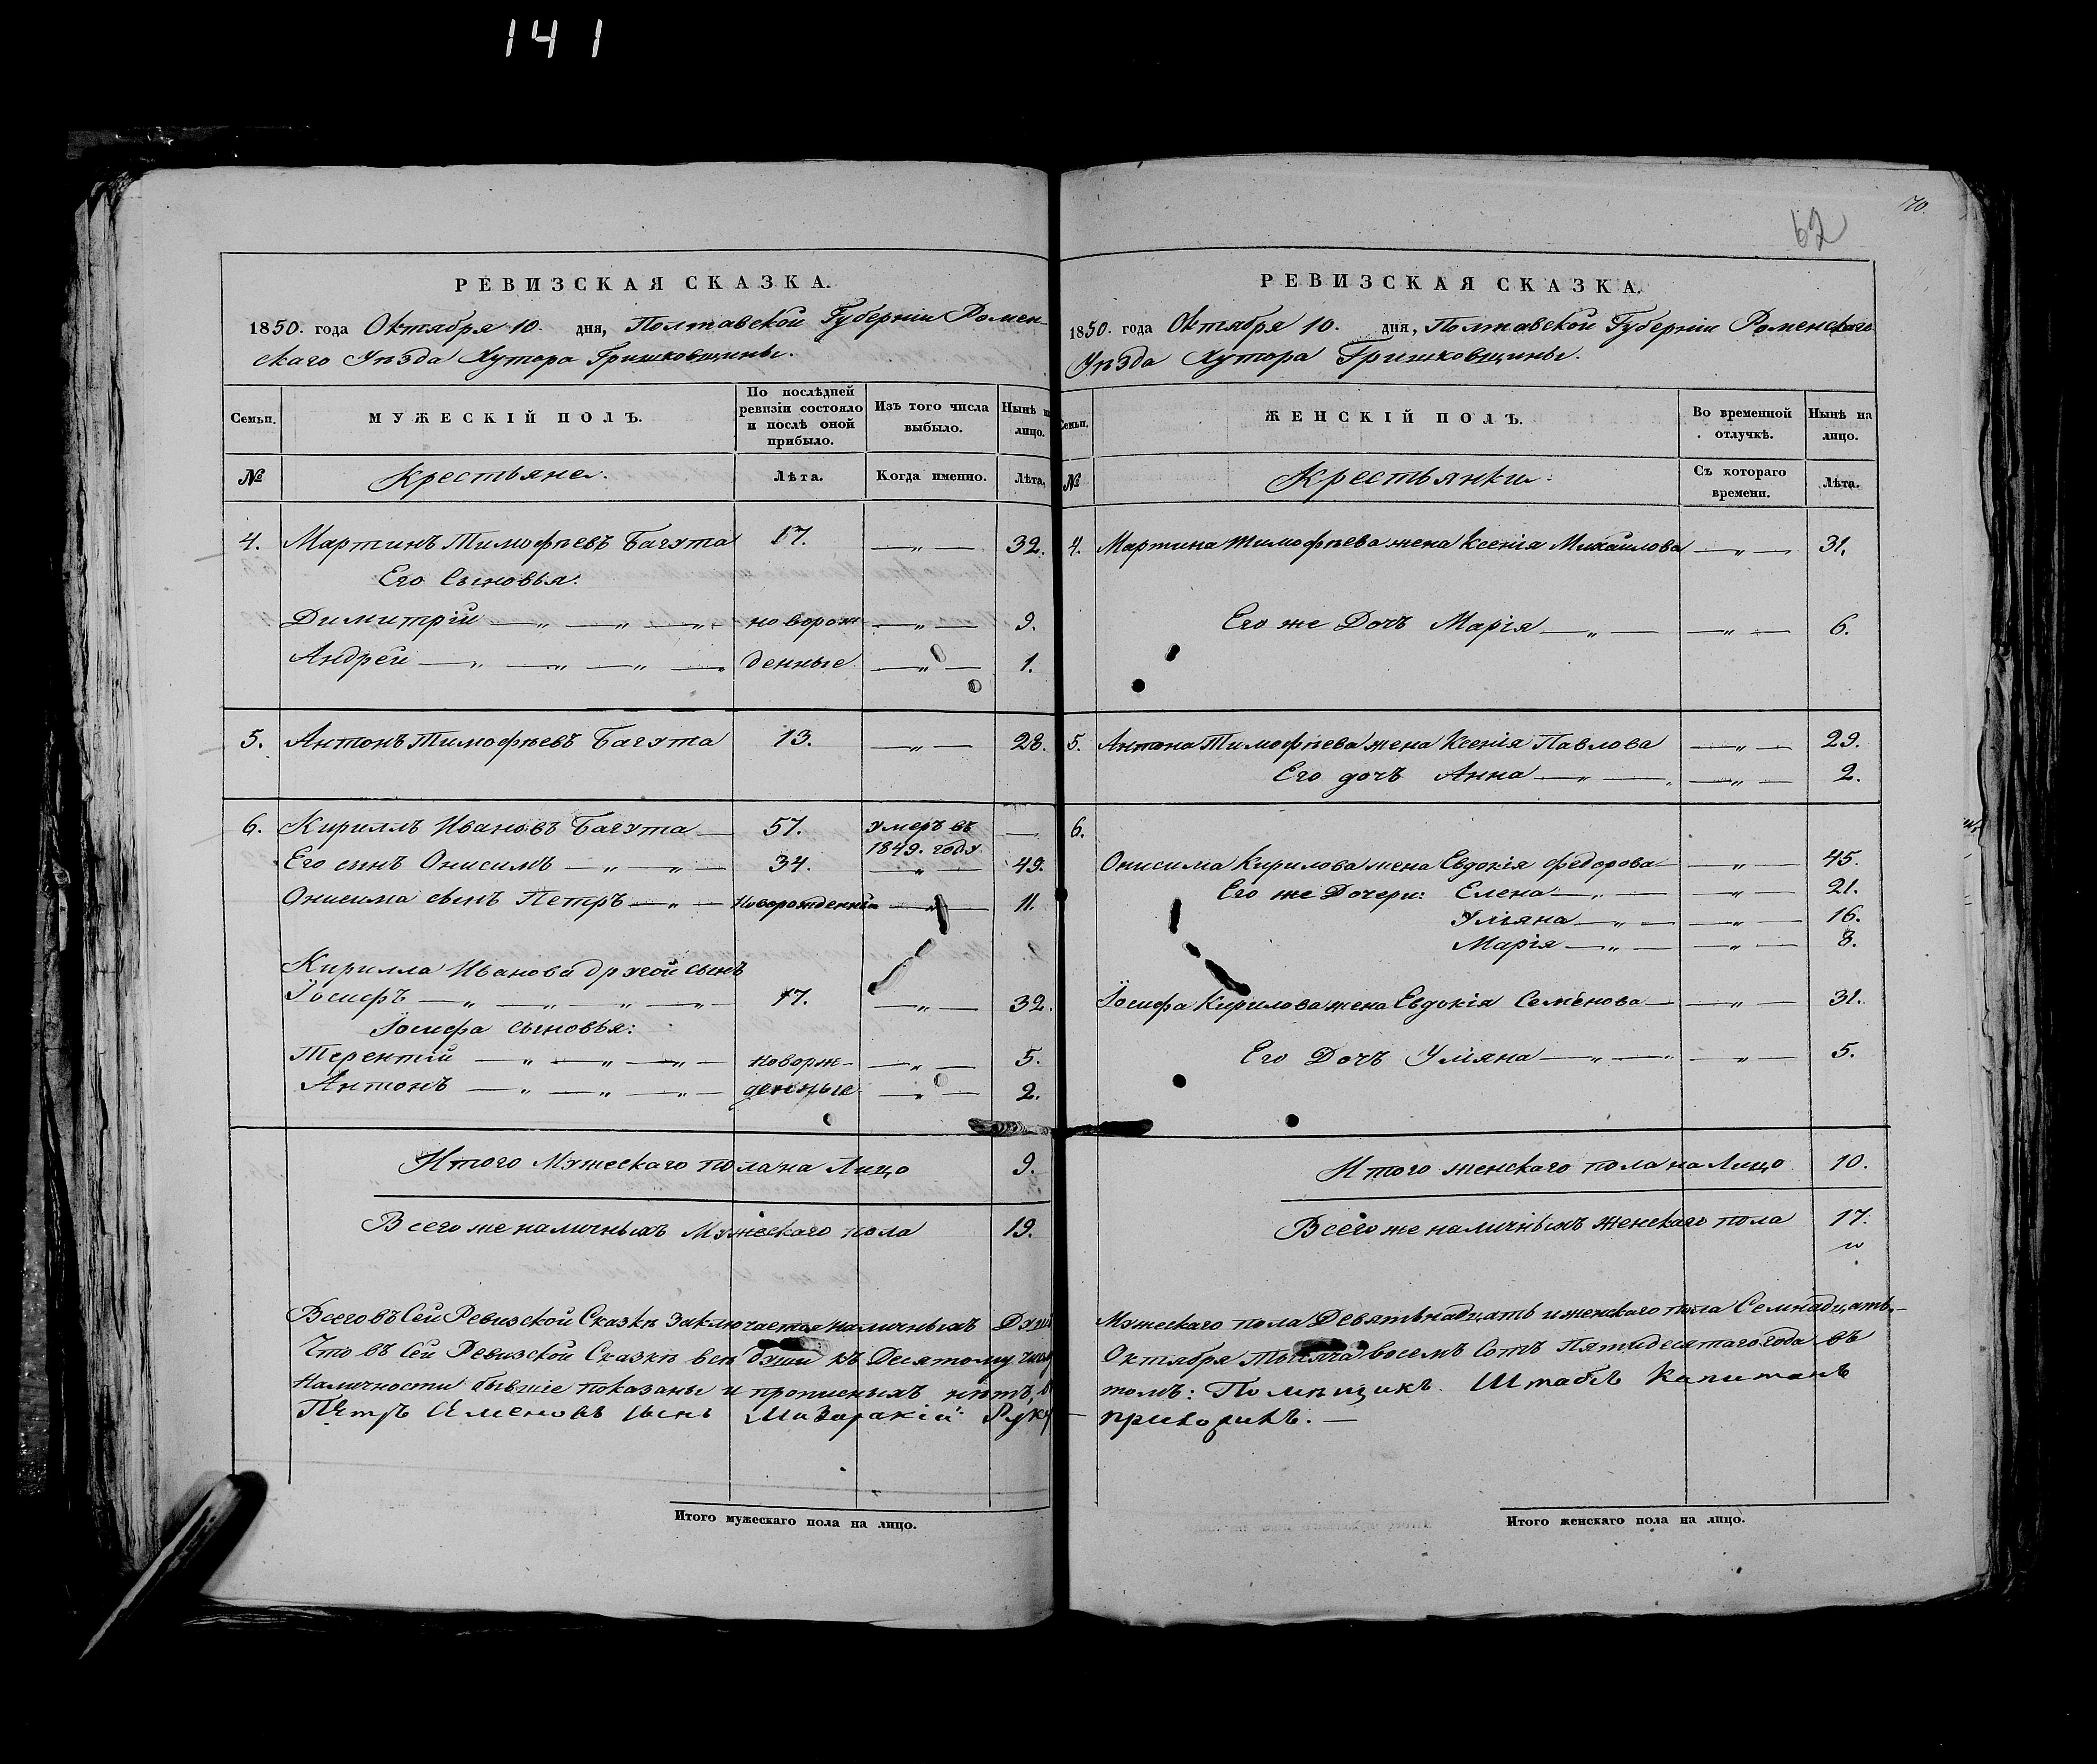 141
РЕВИЗСКАЯ СКАЗКА.
1850. года Октября 10. дня, Полтавской Губерніи Ромен-
скаго Уѣзда Хутора Гришковщины.
Семьи.
МУЖЕСКІЙ ПОЛЪ.
По послѣдней ревизіи состояло и послѣ оной прибыло.
Изъ того числа выбыло.
Нынѣ на лицо.
№ Крестьяне. Лѣта. Когда именно. Лѣта.
4. Мартинъ Тимофѣевъ Багута 17. —„— 32.
Его Сыновья:
Димитрій —„—„—„— новорож- —„— 9.
Андрей —„—„—„— денные —„— 1.
5. Антонъ Тимофѣевъ Багута 13. —„— 28.
6. Кириллъ Ивановъ Багута — 57. умеръ въ —
1849. году
Его сынъ Онисимъ —„—„— 34. —„— 49.
Онисима сынъ Петръ —„— Новорожденный —„— 11.
Кирилла Иванова другой сынъ
Іосифъ —„—„—„—„— 17. —„— 32.
Іосифа сыновья:
Терентій —„—„—„— новорж- —„— 5.
Антонъ —„—„—„— денные —„— 2.
Итого Мужескаго пола на Лицо 9.
Всего же наличныхъ Мужескаго пола 19.
Всего въ Сей Ревизской Сказкѣ Заключается наличныхъ Душъ
Что въ Сей Ревизской Сказкѣ всѣ души къ Десятому числ
Наличности бывшіе показаны и прописныхъ нѣтъ, в
Петръ Семеновъ сынъ Руку
Итого мужескаго пола на лицо.
70.
62
РЕВИЗСКАЯ СКАЗКА.
1850. года Октября 10. дня, Полтавской Губерніи Роменскаго
Уѣзда Хутора Гришковщины.
Семьи.
ЖЕНСКІЙ ПОЛЪ.
Во временной отлучкѣ.
Нынѣ на лицо.
№ Крестьянки: Съ котораго времени. Лѣта.
4. Мартина Тимофѣева жена Ксенія Михайлова —„— 31.
Его же Дочь Марія —„— —„— 6.
5. Антона Тимофѣева жена Ксенія Павлова —„— 29.
Его дочь Анна —„— —„— 2.
6.
Онисима Кирилова жена Евдокія Федорова —„— 45.
Его же Дочери: Елена —„— —„— 21.
Уліяна —„— —„— 16.
Марія —„— —„— 8.
Іосифа Кирилова жена Евдокія Семенова —„— 31.
Его Дочь Уліяна —„— —„— 5.
Итого женскаго пола на Лицо 10.
Всего же наличныхъ женскаго пола 17.
Мужескаго пола Девятьнадцать и женскаго пола Семнадцать.—
Октября Тысяча восемь Сотъ Пятидесятаго года въ
томъ: Помѣщикъ Штабсъ Капитанъ
приложилъ. —
Итого женскаго пола на лицо.